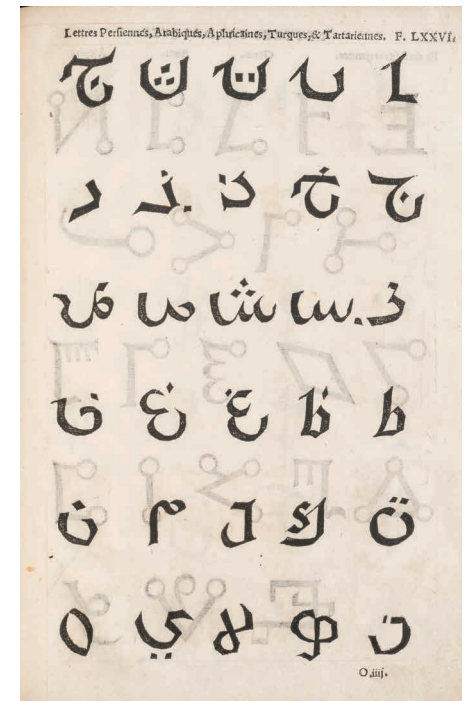 Lettres Persiennes, Arabiques, Aphricaines, Turques, & Tartariennes. F. LXXVI.
ا ب ت ث ج
ح خ د ذ ر
ز س ش ص ض
ط ظ ع غ ف
ق ك ل م ن
لا ي
O.iiij.